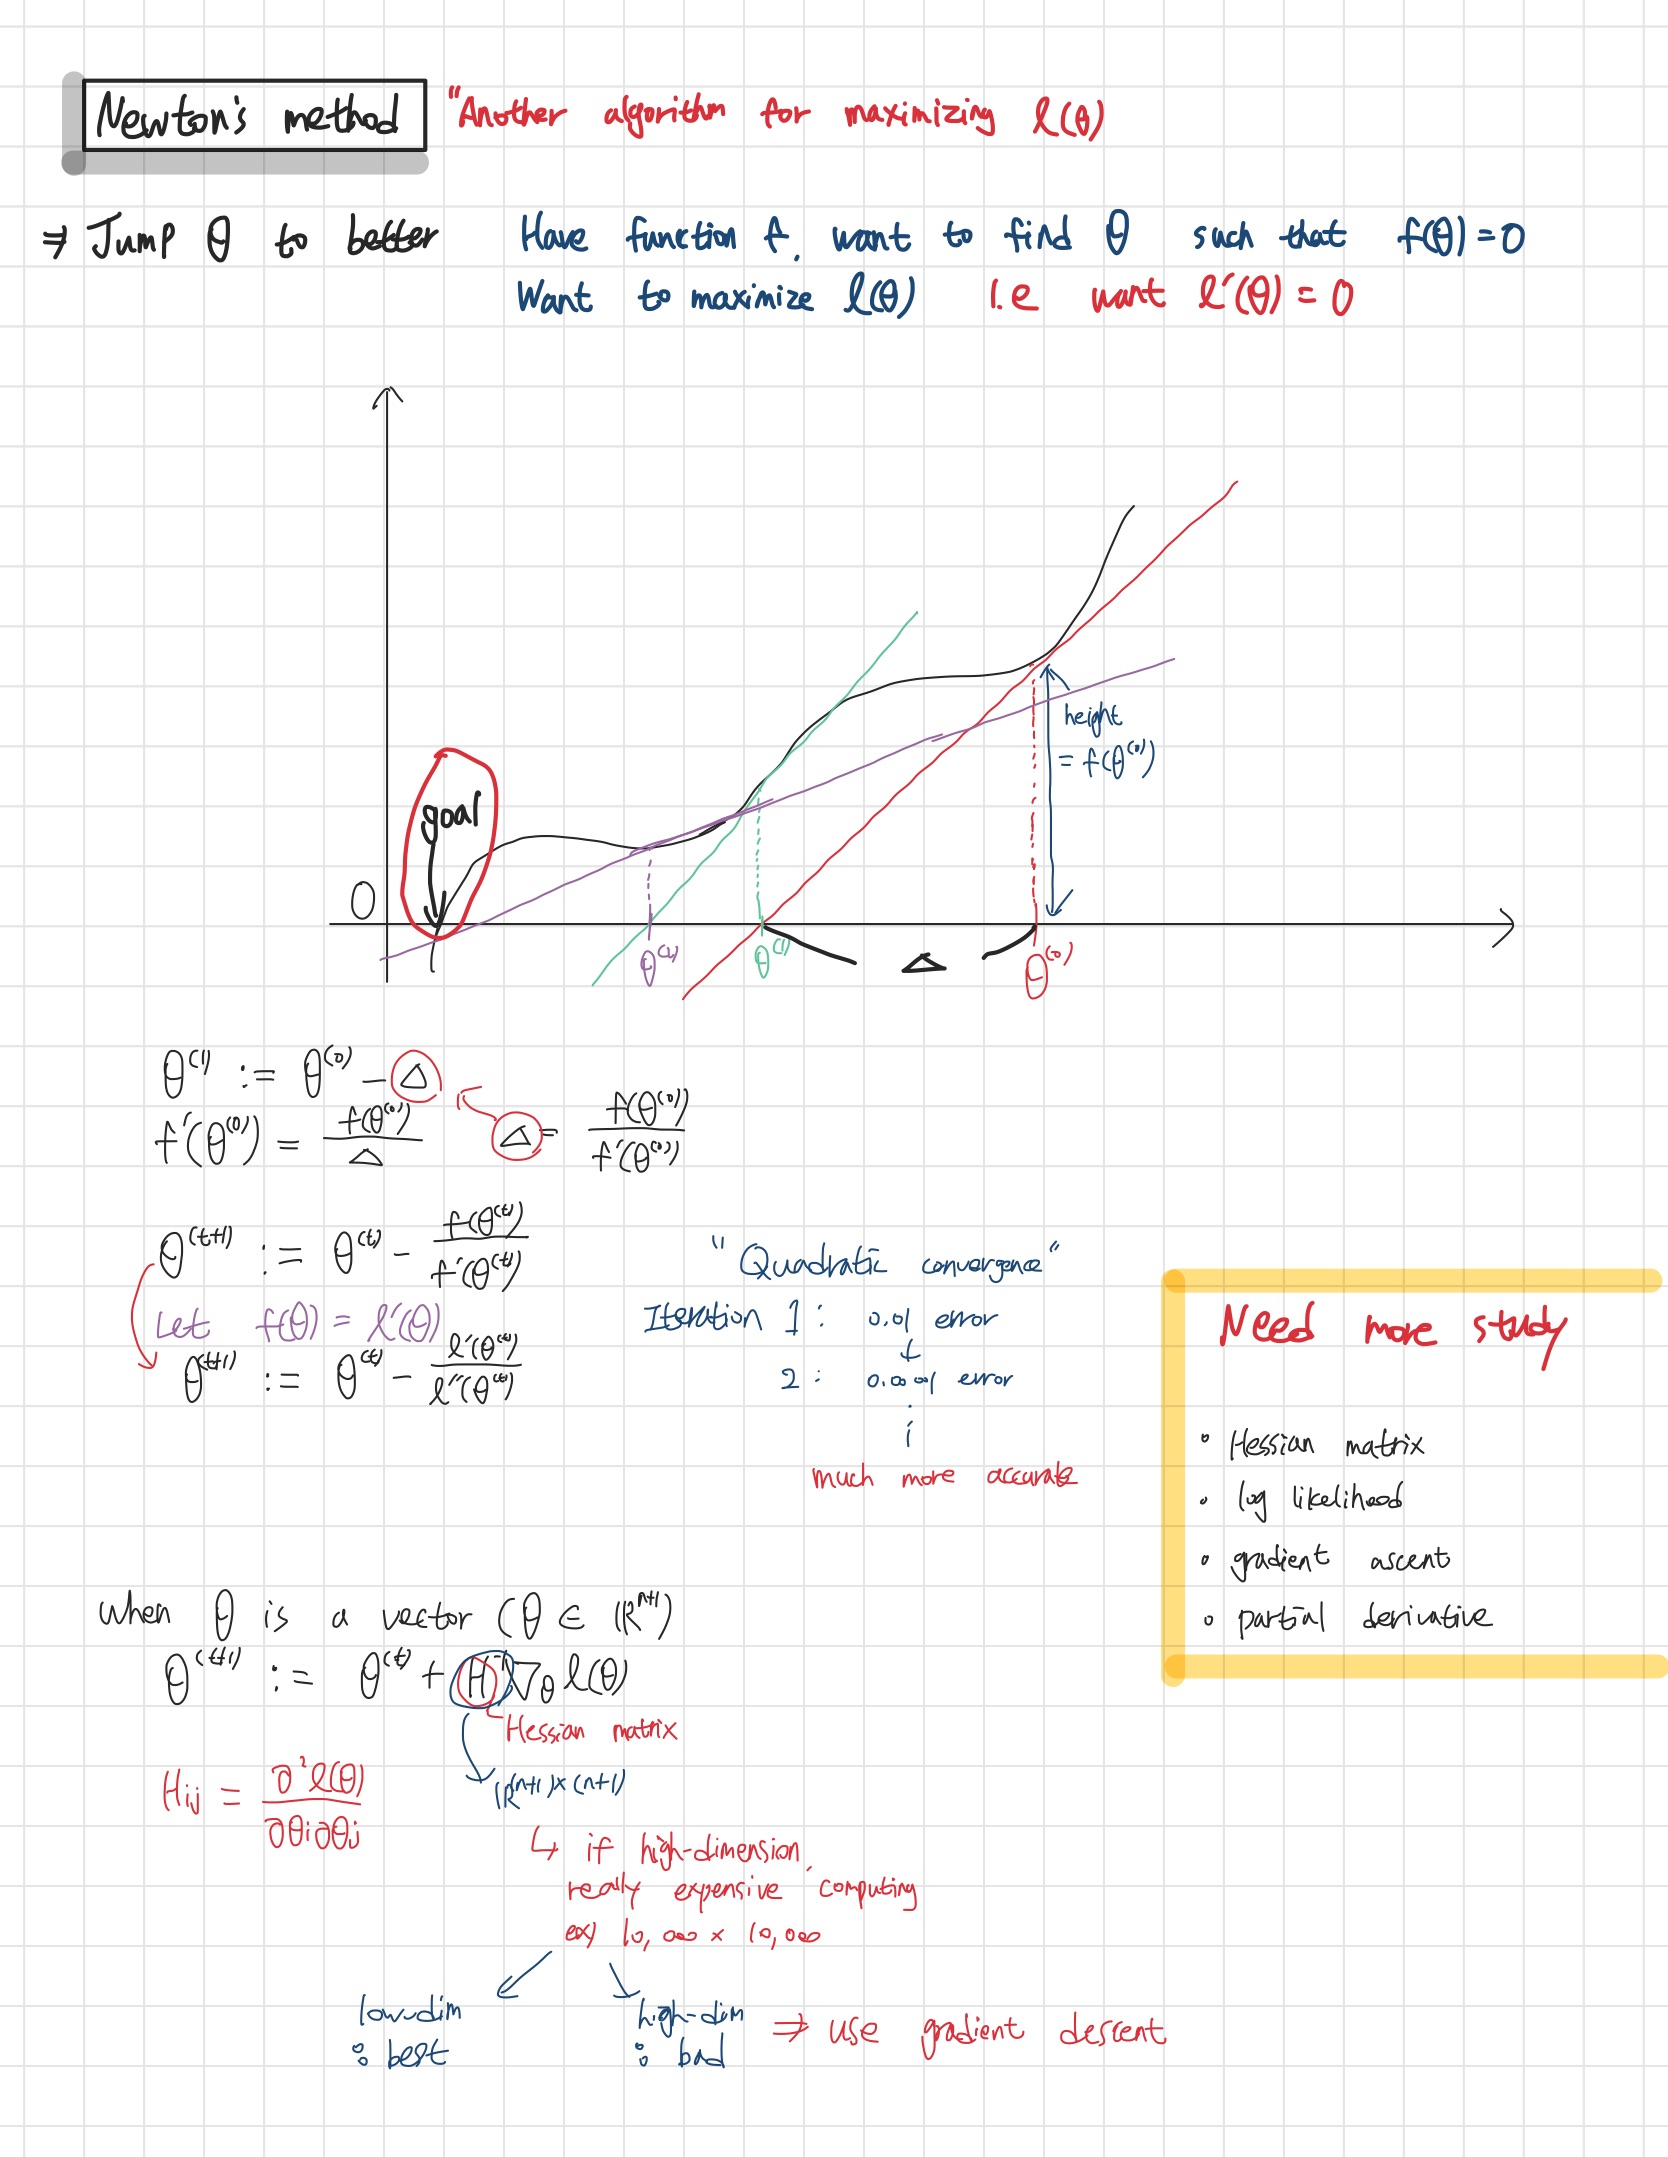 Newton's method "Another algorithm for maximizing ℓ(θ)
⇒ Jump θ to better Have function f, want to find θ such that f(θ)=0
Want to maximize ℓ(θ) i.e want ℓ'(θ) = 0
goal
height
= f(θ^(0))
0
θ^(2) θ^(1) Δ θ^(0)
θ^(1) := θ^(0) - Δ
f'(θ^(0)) = f(θ^(0)) / Δ Δ = f(θ^(0)) / f'(θ^(0))
θ^(t+1) := θ^(t) - f(θ^(t)) / f'(θ^(t))
Let f(θ) = ℓ'(θ)
θ^(t+1) := θ^(t) - ℓ'(θ^(t)) / ℓ''(θ^(t))
"Quadratic convergence"
Iteration 1 : 0.01 error
↓
2 : 0.0001 error
much more accurate
Need more study
• Hessian matrix
• log likelihood
• gradient ascent
• partial derivative
when θ is a vector (θ ∈ ℝ^(n+1))
θ^(t+1) := θ^(t) + H^-1 ∇_θ ℓ(θ)
Hessian matrix
ℝ^(n+1)×(n+1)
H_ij = ∂²ℓ(θ) / ∂θi∂θj
↳ if high-dimension,
really expensive computing
ex) 10,000 × 10,000
low-dim
: best
high-dim
: bad
⇒ use gradient descent